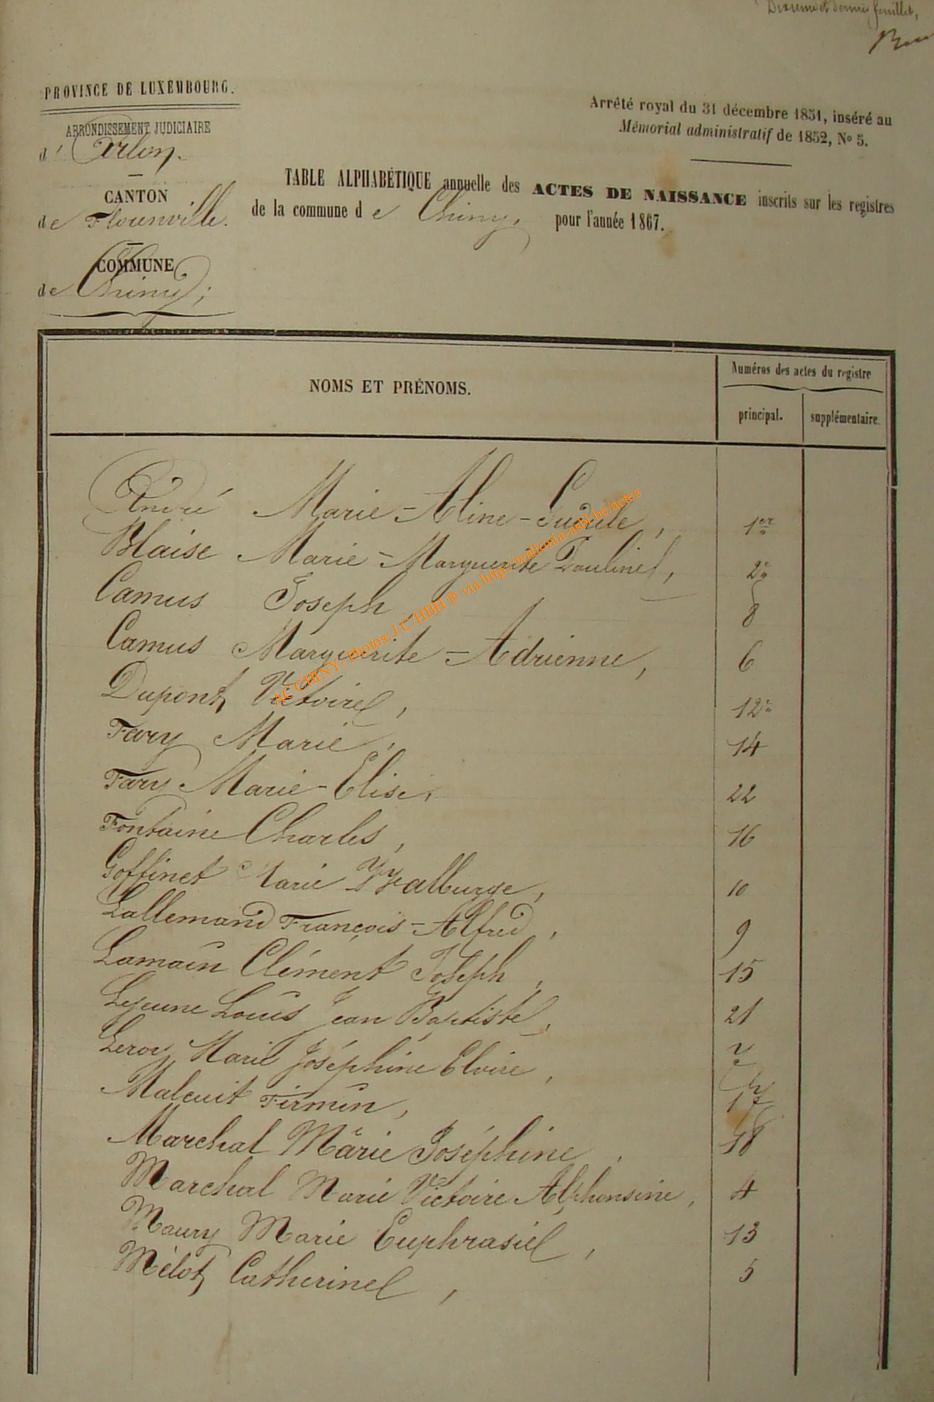 Dixième et dernier feuillet,
PROVINCE DE LUXEMBOURG.
ARRONDISSEMENT JUDICIAIRE
d' Arlon.
CANTON
de Florenville.
COMMUNE
de Chiny;
Arrêté royal du 31 décembre 1851, inséré au
Mémorial administratif de 1852, No 5.
TABLE ALPHABÉTIQUE annuelle des ACTES DE NAISSANCE inscrits sur les registres
de la commune de Chiny, pour l'année 1867.
NOMS ET PRÉNOMS.
Numéros des actes du registre
principal. supplémentaire.
André Marie-Aline-Gudule, 1er
Blaise Marie-Marguerite Pauline, 2e
Camus Joseph 8
Camus Marguerite-Adrienne, 6
Dupont Victoire, 12e
Fary Marie, 14
Fary Marie-Elise, 22
Fontaine Charles, 16
Goffinet Marie Walburge, 10
Lallemand François-Alfred, 9
Lamain Clément Joseph, 15
Lejeune Louis Jean Baptiste, 21
Leroy Marie Joséphine Elvire, 7
Malcuit Firmin, 17
Marchal Marie Joséphine, 18
Marchal Marie Victoire Alphonsine, 4
Maury Marie Euphrasie, 13
Mélot Catherine, 5